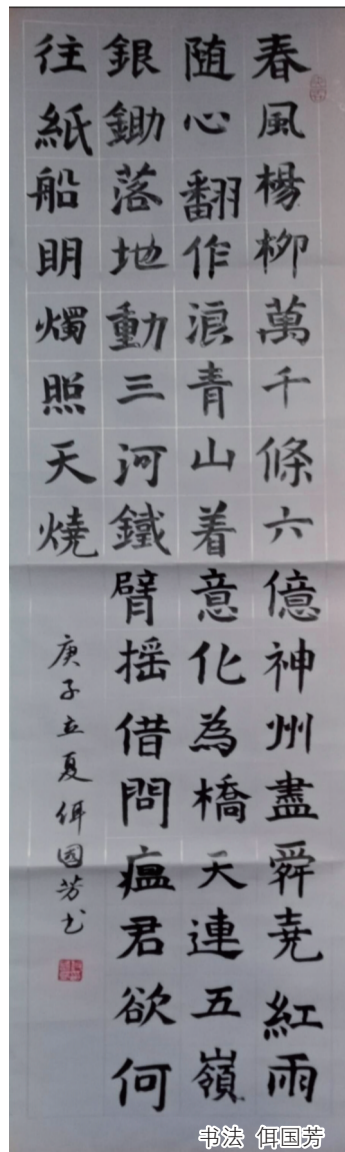 春風楊柳萬千條六億神州盡舜堯紅雨
随心翻作浪青山着意化為橋天連五嶺
銀鋤落地動三河鐵臂摇借問瘟君欲何
往紙船明燭照天燒
庚子立夏佴國芳书
书法 佴国芳